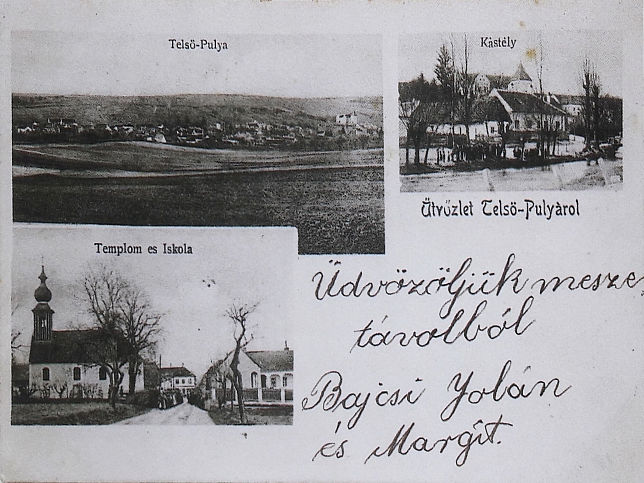 Telsö-Pulya
Kàstély
Ütvözlet Telsö-Pulyàrol
Templom es Iskola
Üdvözöljük messze
távolból
Bajcsi Yolán
és Margit.